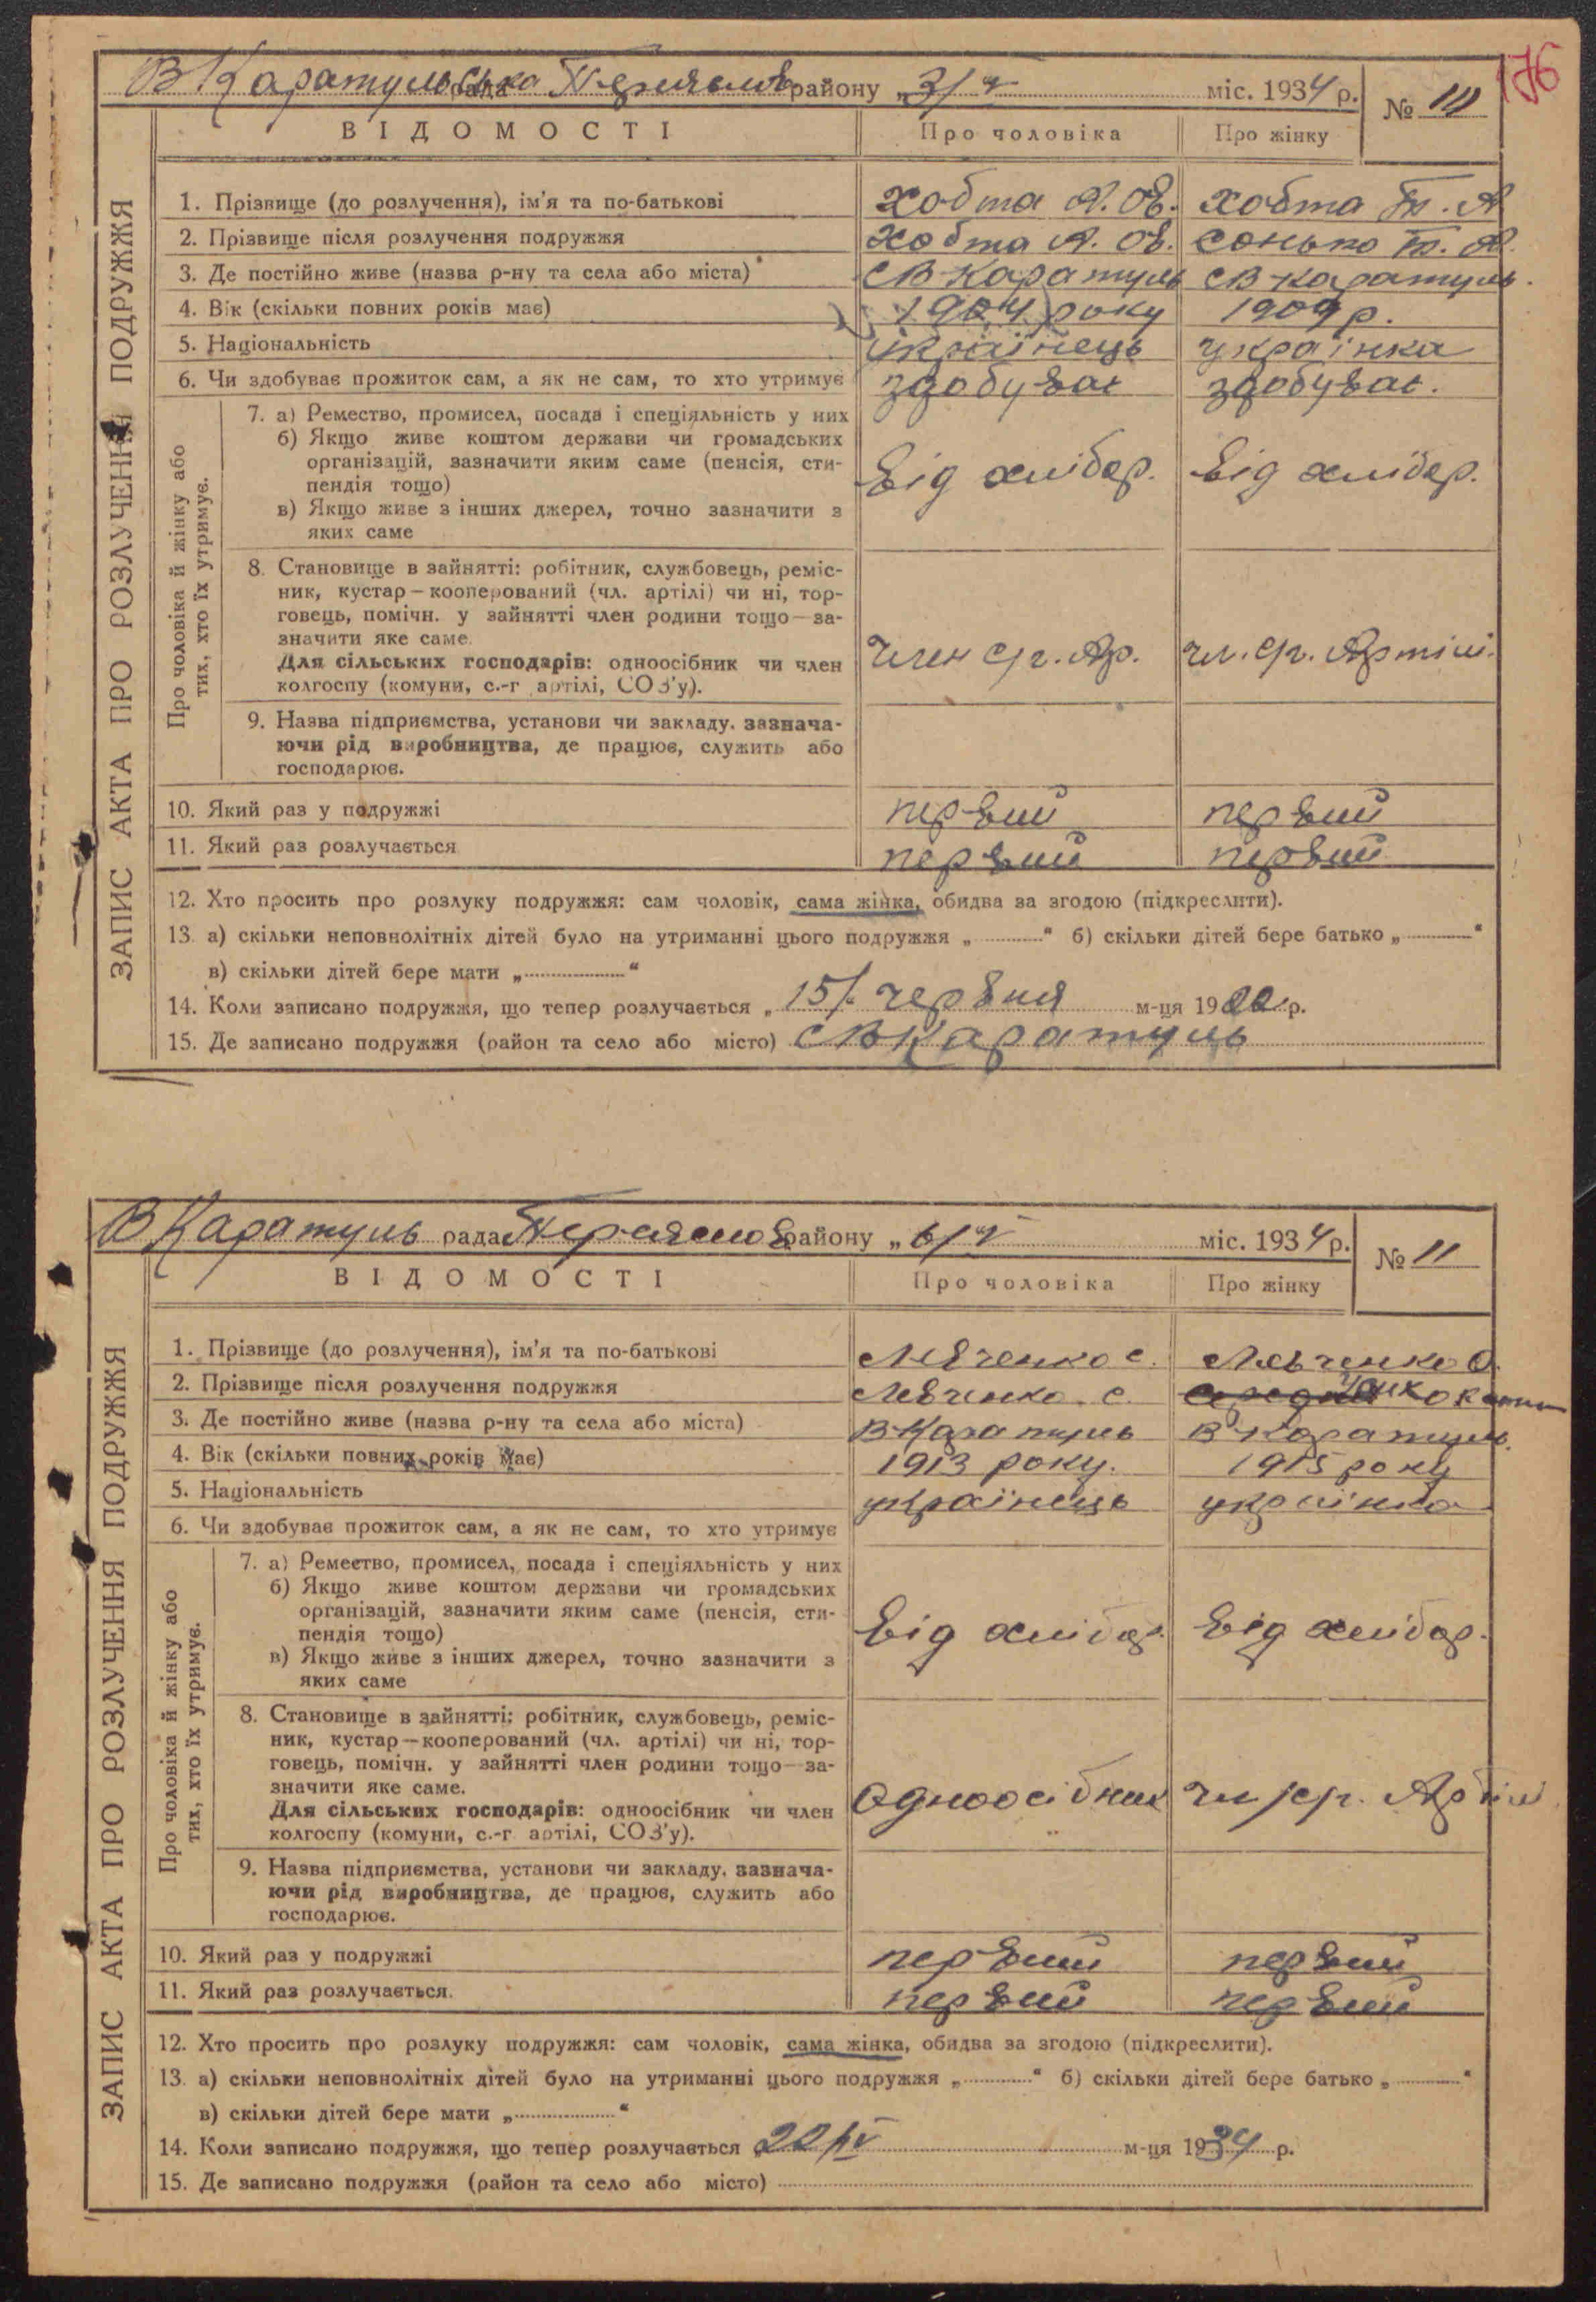 176
В Каратульська рада Переяслів району „3/V міс. 1934 р. № 10
ВІДОМОСТІ Про чоловіка Про жінку
ЗАПИС АКТА ПРО РОЗЛУЧЕННЯ ПОДРУЖЖЯ
1. Прізвище (до розлучення), ім'я та по-батькові Хобта А. Ов. Хобта Т. А
2. Прізвище після розлучення подружжя Хобта А. Ов. Сонько Т. А.
3. Де постійно живе (назва р-ну та села або міста) СВ Каратуль СВ Каратуль.
4. Вік (скільки повних років має) 1904 року 1909 р.
5. Національність українець українка
6. Чи здобуває прожиток сам, а як не сам, то хто утримує здобуває здобуває.
Про чоловіка й жінку або тих, хто їх утримує.
7. а) Ремество, промисел, посада і спеціяльність у них
б) Якщо живе коштом держави чи громадських
організацій, зазначити яким саме (пенсія, сти-
пендія тощо) від хлібор. від хлібор.
в) Якщо живе з інших джерел, точно зазначити з
яких саме
8. Становище в зайнятті: робітник, службовець, реміс-
ник, кустар—кооперований (чл. артілі) чи ні, тор-
говець, помічн. у зайнятті член родини тощо—за-
значити яке саме.
Для сільських господарів: одноосібник чи член член с/г. Ар. чл. с/г. Артілі.
колгоспу (комуни, с.-г артілі, СОЗ'у).
9. Назва підприємства, установи чи закладу, зазнача-
ючи рід виробництва, де працює, служить або
господарює.
10. Який раз у подружжі первий первий
11. Який раз розлучається первий первий
12. Хто просить про розлуку подружжя: сам чоловік, сама жінка, обидва за згодою (підкреслити).
13. а) скільки неповнолітніх дітей було на утриманні цього подружжя „ “ б) скільки дітей бере батько „ “
в) скільки дітей бере мати „ “
14. Коли записано подружжя, що тепер розлучається „ 15/. червня м-ця 19 р.
15. Де записано подружжя (район та село або місто) СВ Каратуль
В Каратуль рада Переяслов району „6/V міс. 1934 р. № 11
ВІДОМОСТІ Про чоловіка Про жінку
ЗАПИС АКТА ПРО РОЗЛУЧЕННЯ ПОДРУЖЖЯ
1. Прізвище (до розлучення), ім'я та по-батькові Левченко с. Левченко О.
2. Прізвище після розлучення подружжя Левченко. с.
3. Де постійно живе (назва р-ну та села або міста) В Каратуль В Каратуль.
4. Вік (скільки повних років має) 1913 року. 1915 року
5. Національність українець українка
6. Чи здобуває прожиток сам, а як не сам, то хто утримує
Про чоловіка й жінку або тих, хто їх утримує.
7. а) Ремество, промисел, посада і спеціяльність у них
б) Якщо живе коштом держави чи громадських
організацій, зазначити яким саме (пенсія, сти-
пендія тощо) від хлібор. від хлібор.
в) Якщо живе з інших джерел, точно зазначити з
яких саме
8. Становище в зайнятті: робітник, службовець, реміс-
ник, кустар—кооперований (чл. артілі) чи ні, тор-
говець, помічн. у зайнятті член родини тощо—за-
значити яке саме. одноосібник чл с/г. Артілі
Для сільських господарів: одноосібник чи член
колгоспу (комуни, с.-г артілі, СОЗ'у).
9. Назва підприємства, установи чи закладу, зазнача-
ючи рід виробництва, де працює, служить або
господарює.
10. Який раз у подружжі первий первий
11. Який раз розлучається. первий первий
12. Хто просить про розлуку подружжя: сам чоловік, сама жінка, обидва за згодою (підкреслити).
13. а) скільки неповнолітніх дітей було на утриманні цього подружжя „ “ б) скільки дітей бере батько „ “
в) скільки дітей бере мати „ “
14. Коли записано подружжя, що тепер розлучається 22/IV м-ця 1934 р.
15. Де записано подружжя (район та село або місто)